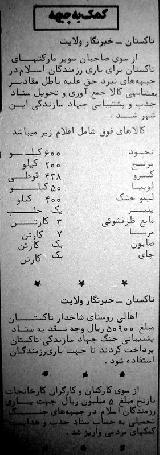 کمک به جبهه
تاکستان ــ خبرنگار ولایت
از سوی صاحبان سوپر مارکتهای
تاکستان برای یاری رزمندگان اسلام در
جبهه‌های نبرد حق علیه باطل مقادیر
متنابهی کالا جمع آوری و تحویل ستاد
جذب و پشتیبانی جهاد سازندگی این
شهر شد.
کالاهای فوق شامل اقلام زیر میباشد
نخود ۶۰۰ کیلو
برنج ۲۰۰ کیلو
کنسرو ۴۳۸ قوطی
لوبیا ۵۰ کیلو
لیمو ۴۰۰ کیلو
پنیر یک حلب
مایع ظرفشوئی ۳ کارتن
۲ کارتن
صابون یک کارتن
چای یک کارتن
تاکستان ــ خبرنگار ولایت
اهالی روستای تاکستان
مبلغ ۵۰۹۰۰ ریال وجه نقد به ستاد
پشتیبانی جنگ جهاد سازندگی تاکستان
پرداخت کردند تا جهت یاری رزمندگان
استفاده شود.
از سوی کارکنان و کارگران کارخانجات
نارنج مبلغ ۵ میلیون ریال جهت یاری
رزمندگان اسلام در جبهه‌های جنگ
تحمیلی به حساب ستاد جذب و هدایت
کمکهای مردمی واریز شد.